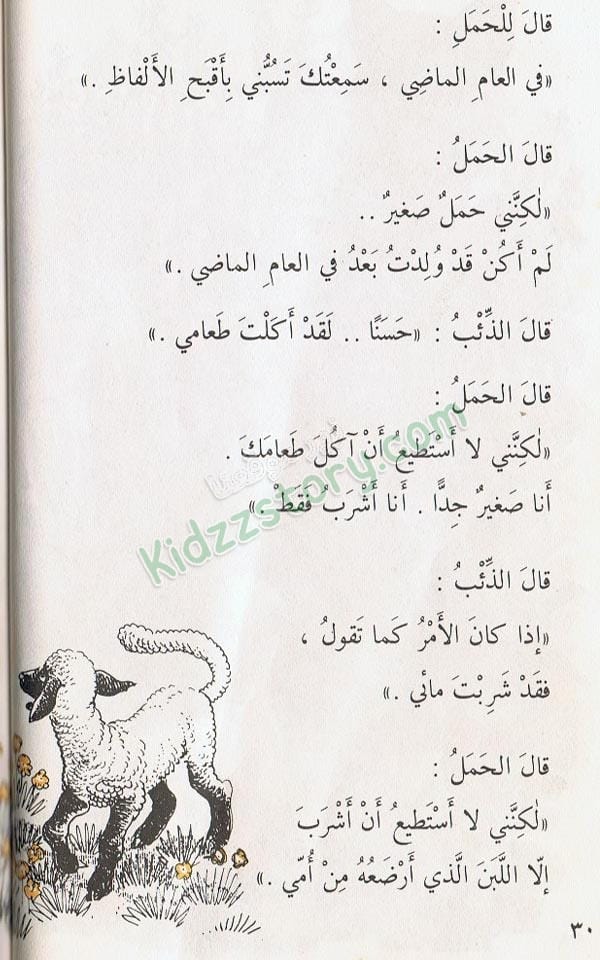 قالَ لِلْحَمَلِ :
«في العامِ الماضِي ، سَمِعْتُكَ تَسُبُّني بِأَقْبَحِ الأَلْفاظِ .»
قالَ الحَمَلُ :
«لٰكِنَّني حَمَلٌ صَغيرٌ ..
لَمْ أَكُنْ قَدْ وُلِدْتُ بَعْدُ في العامِ الماضي .»
قالَ الذِّئْبُ : «حَسَنًا .. لَقَدْ أَكَلْتَ طَعامي .»
قالَ الحَمَلُ :
«لٰكِنَّني لا أَسْتَطيعُ أَنْ آكُلَ طَعامَكَ .
أَنا صَغيرٌ جِدًّا . أَنا أَشْرَبُ فَقَطْ .»
Kidzzstory.com
قالَ الذِّئْبُ :
«إذا كانَ الأَمْرُ كَما تَقولُ ،
فقَدْ شَرِبْتَ مائي .»
قالَ الحَمَلُ :
«لٰكِنَّني لا أَسْتَطيعُ أَنْ أَشْرَبَ
إلّا اللَّبَنَ الَّذي أَرْضَعُهُ مِنْ أُمّي .»
٣٠